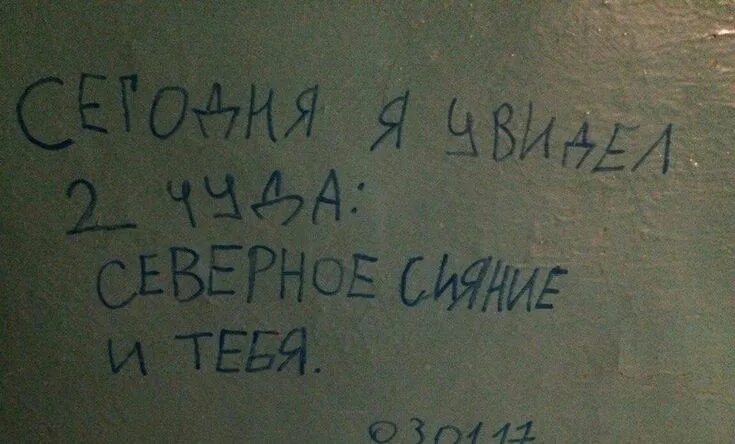 СЕГОДНЯ Я УВИДЕЛ
2 ЧУДА:
СЕВЕРНОЕ СИЯНИЕ
И ТЕБЯ.
030117